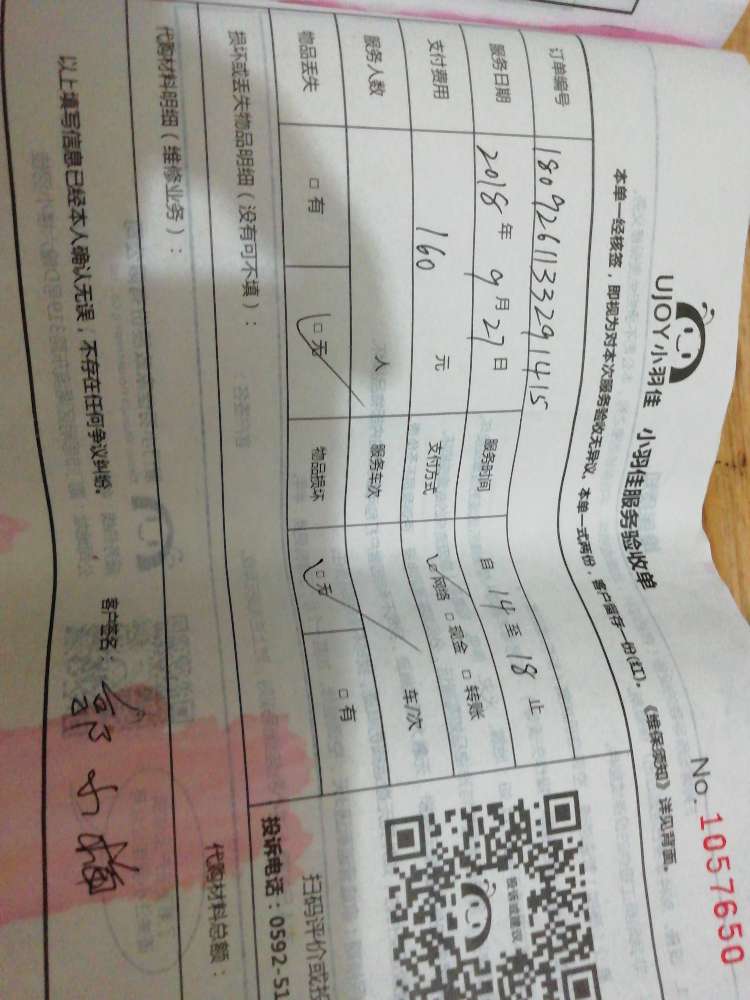 No. 1057650
UJOY小羽佳 小羽佳服务验收单
本单一经核签，即视为对本次服务验收无异议。本单一式两份，客户留存一份(红)。《维保须知》详见背面。
订单编号 180926113329141​5
服务日期 2018年9月27日 服务时间 自14至18止
支付费用 160元 支付方式 □网络 □现金 □转账
服务人数 人 服务车次 车/次
物品丢失 □有 □无 物品损坏 □无 □有
损坏或丢失物品明细（没有可不填）：
扫码评价或投
投诉或建议
投诉电话：0592-51
代购材料明细（维修业务）： 代购材料总额：
以上填写信息已经本人确认无误，不存在任何争议纠纷。 客户签名：